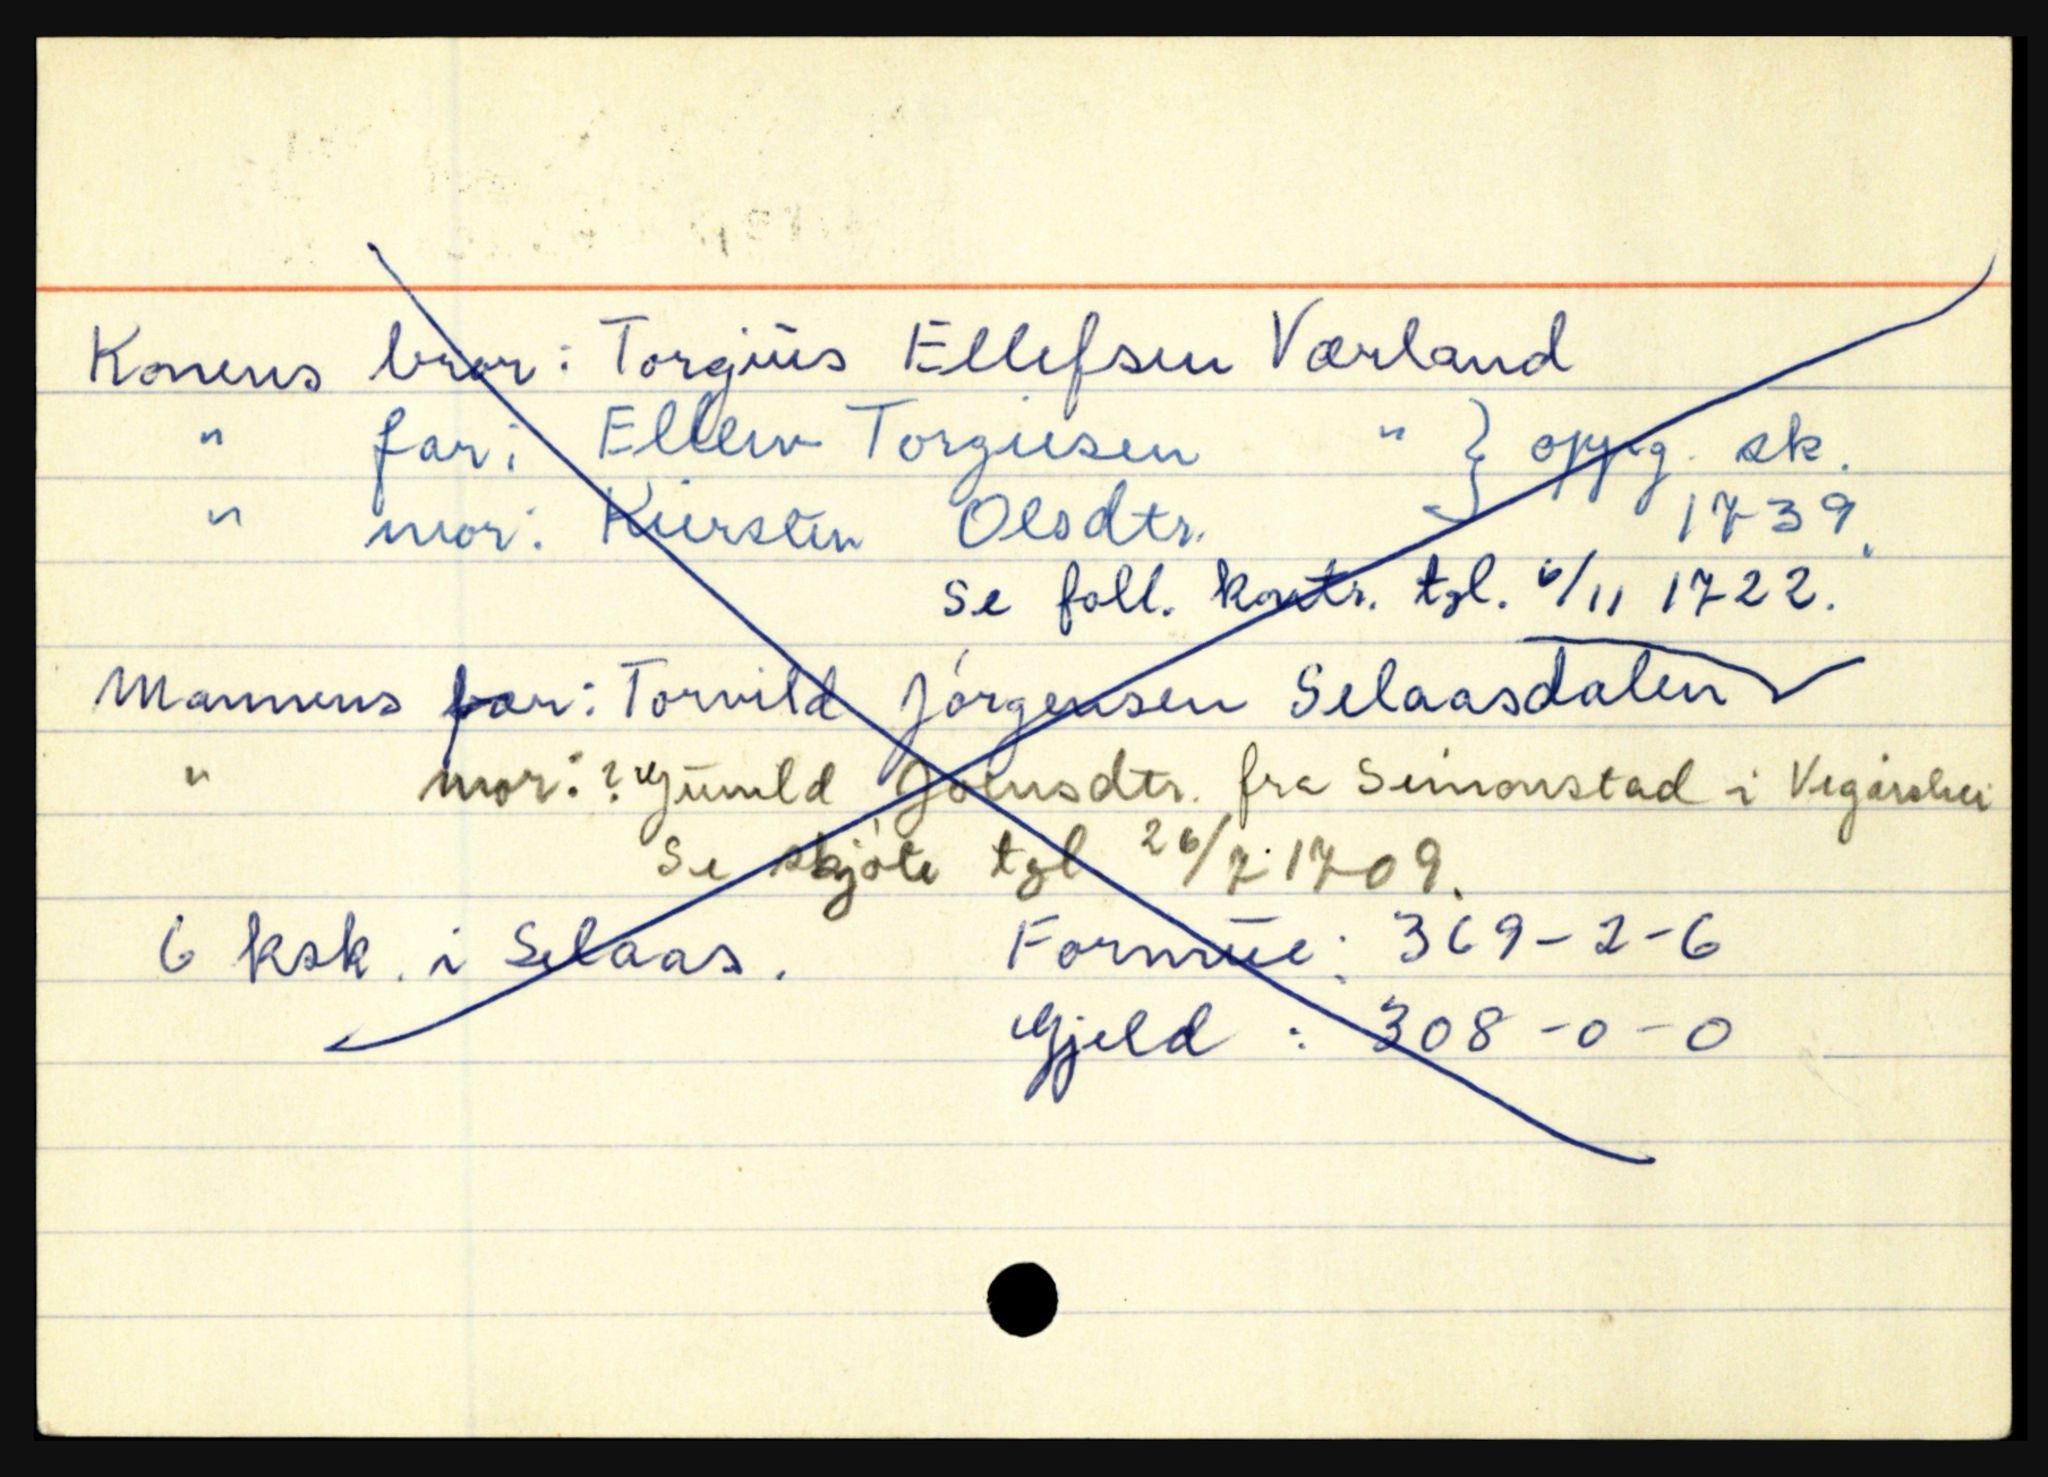 Konens bror: Torgius Ellefsen Værland
" far: Ellew Torgiusen " } oppg. sk.
" mor: Kiersten Olsdtr. 1739.
se foll. kontr. tgl. 6/11 1722.
Mannens far: Torvild Jörgensen Selaasdalen
" mor: ? Gunild Joensdtr. fra Simonstad i Vegårshei
Se skjöte tgl 26/7 1709.
6 ksk. i Selaas. Formue: 369-2-6
Gjeld : 308-0-0